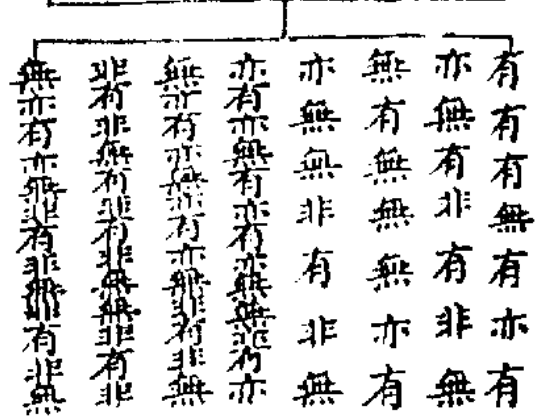 有有有無有亦有
亦無有非有非無
無有無無無亦有
亦無無非有非無
亦有亦無有亦有亦無無非有亦
無亦有亦無非有亦無非有非無
非有非無有非有非無無非有非
無亦有亦無非有非無非有非無